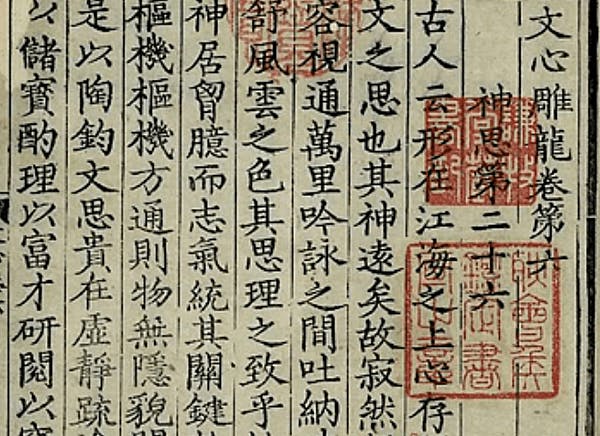 文心雕龍卷第六
神思第二十六
古人云形在江海之上心存
文之思也其神遠矣故寂然
容視通萬里吟詠之間吐納
舒風雲之色其思理之致乎
神居胷臆而志氣統其關鍵
樞機樞機方通則物無隱貌
是以陶鈞文思貴在虛靜疏
以儲寶酌理以富才研閱以